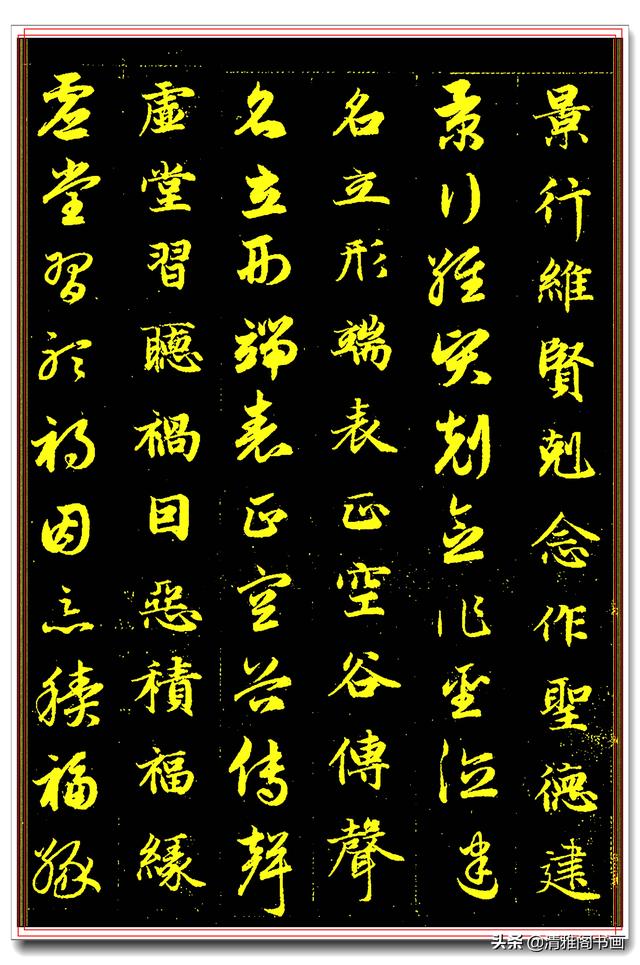 景行維賢剋念作聖德建
景行維賢剋念作聖德建
名立形端表正空谷傳聲
名立形端表正空谷傳聲
虛堂習聽禍因惡積福緣
虛堂習聽禍因惡積福緣
头条 @清雅阁书画